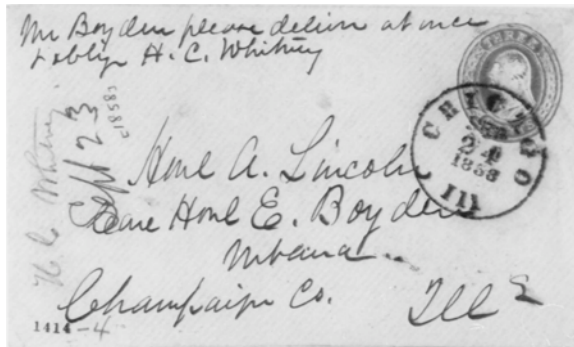 Mr Boyden please deliver at once
& oblige H. C. Whitney
H C Whitney
Sept 23
[1858]
CHICAGO
24
1858
Ill
Honl A. Lincoln
Care Honl E. Boyden
Urbana
Champaign Co.
Ills
1414-4